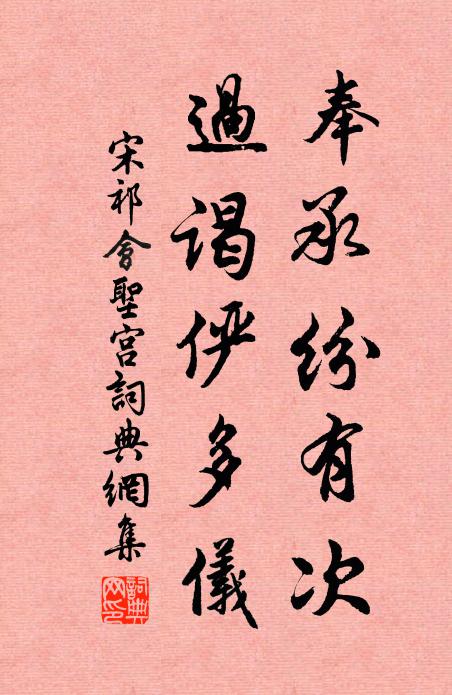 奉承紛有次
過謁俨多儀
宋祁會聖宮詞典網集
詞典網印